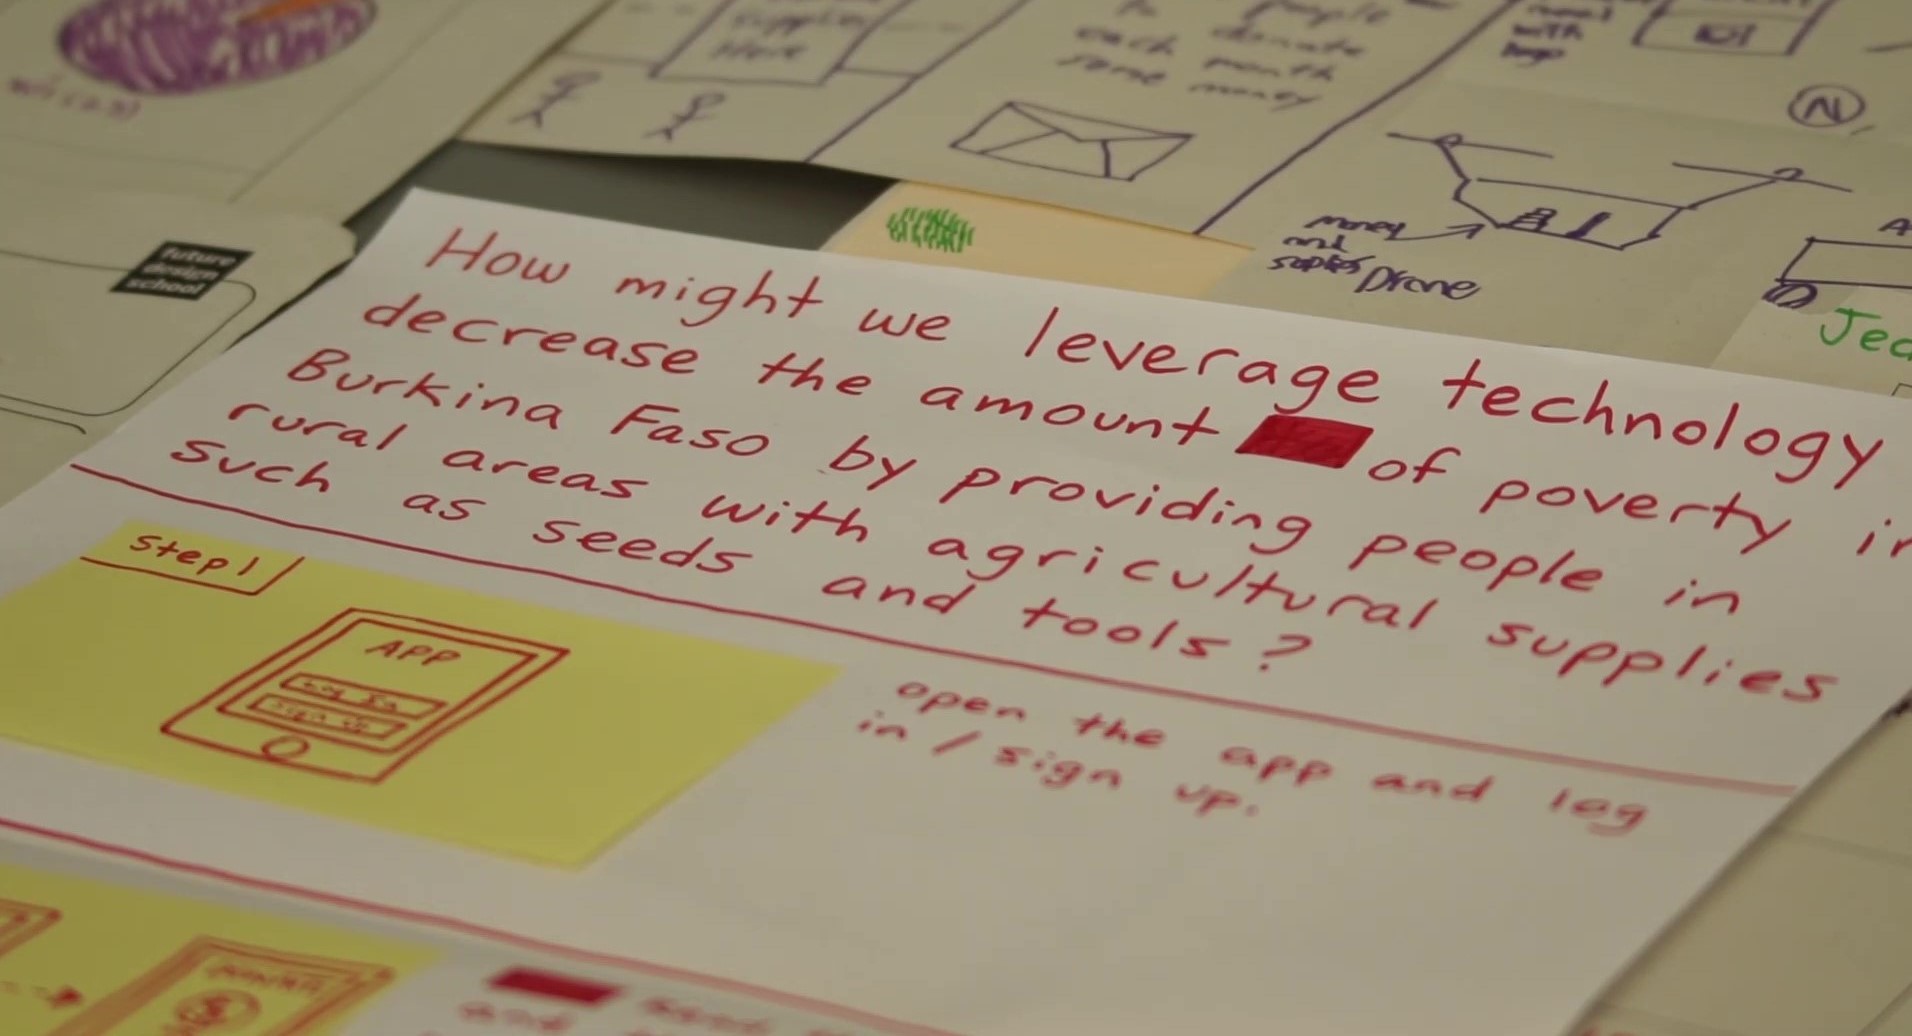 supplies
Here
people
donate
each month
some money
with
N
money
and
Drone
future
design
school
Jec
How might we leverage technology
decrease the amount of poverty in
Burkina Faso by providing people in
rural areas with agricultural supplies
such as seeds and tools?
Step 1
APP
Log In
Sign Up
open the app and log
in / sign up.